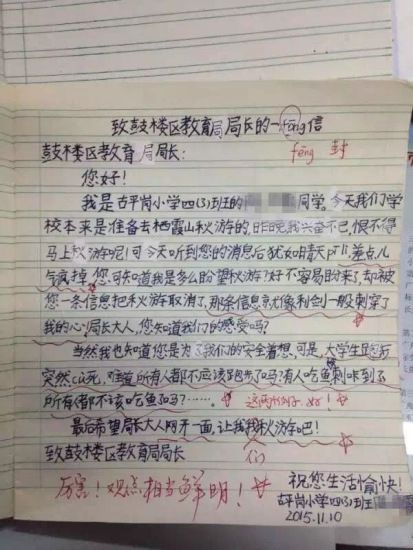 致鼓楼区教育局局长的一fēng信
fēng 封
鼓楼区教育局局长:
您好!
我是古平岗小学四(3)班的 同学。今天我们学
校本来是准备去栖霞山秋游的,昨晚我兴奋不已,恨不得
马上秋游呢!可今天听到您的消息后犹如晴天pī lì,差点儿
气疯掉。您可知道我是多么盼望秋游?好不容易盼来了,却被
您一条信息把秋游取消了,那条信息就像利剑一般刺穿了
我的心。局长大人,您知道我们的感受吗?
当然我也知道您是为了我们的安全着想,可是,大学生跑后
突然cù死,难道所有人都不应该跑步了吗?有人吃鱼刺卡到了
所有人都不该吃鱼了吗?……。 这两个例子好!
最后希望局长大人网开一面,让我我秋游吧!
们
致鼓楼区教育局局长
祝您生活愉快!
厉害!观点相当鲜明!
古平岗小学四(3)班
2015.11.10